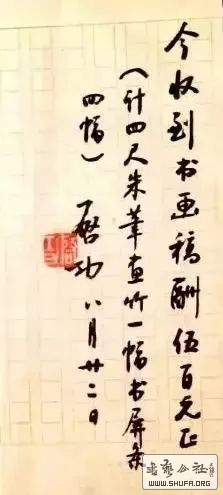 今收到书画稿酬伍百元正
（计四尺朱筆画竹一幅书屏条
四幅） 启功 八月廿二日
書藝公社
WWW.SHUFA.ORG